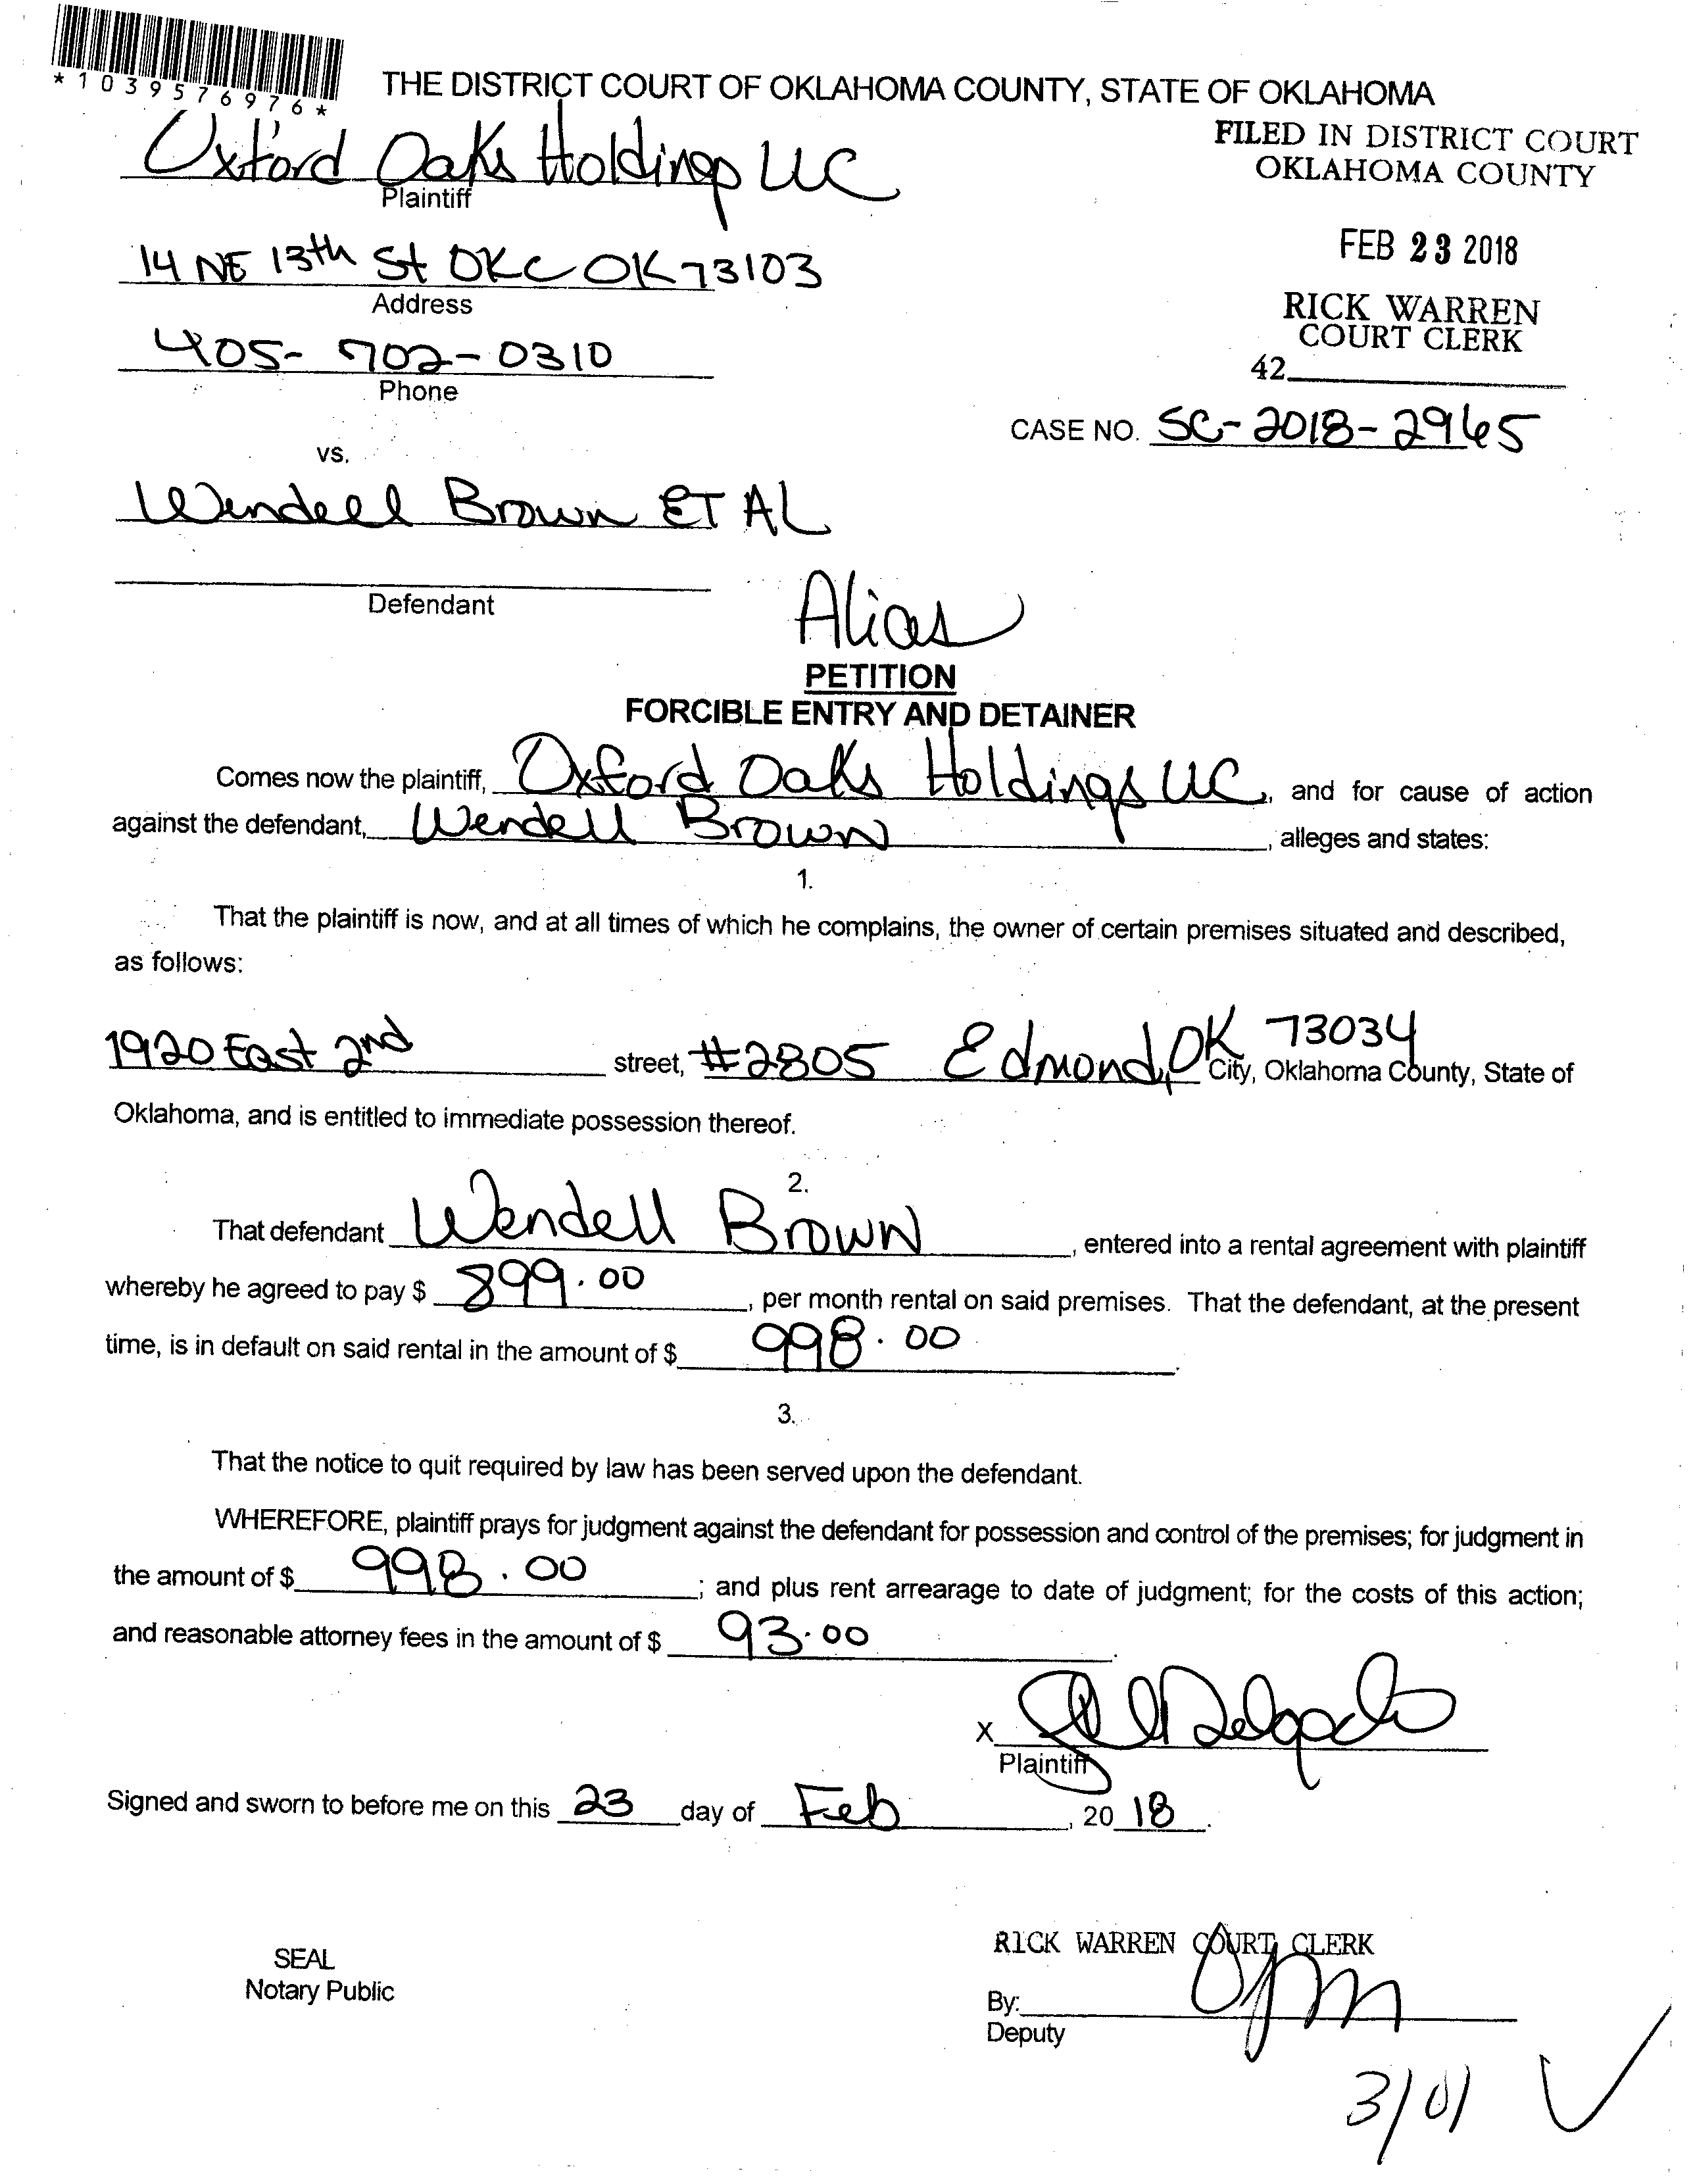 *1039576976*
THE DISTRICT COURT OF OKLAHOMA COUNTY, STATE OF OKLAHOMA
FILED IN DISTRICT COURT
OKLAHOMA COUNTY
Oxford Oaks Holdings LLC
Plaintiff
FEB 23 2018
14 NE 13th St OKC OK 73103
Address
RICK WARREN
COURT CLERK
405-702-0310
Phone
42
CASE NO. SC-2018-2965
vs.
Wendell Brown ET AL
Defendant
Alias
PETITION
FORCIBLE ENTRY AND DETAINER
Comes now the plaintiff, Oxford Oaks Holdings LLC, and for cause of action
against the defendant, Wendell Brown, alleges and states:
1.
That the plaintiff is now, and at all times of which he complains, the owner of certain premises situated and described,
as follows:
1920 East 2nd street, #2805 Edmond, OK 73034 City, Oklahoma County, State of
Oklahoma, and is entitled to immediate possession thereof.
2.
That defendant Wendell Brown, entered into a rental agreement with plaintiff
whereby he agreed to pay $ 899.00, per month rental on said premises. That the defendant, at the present
time, is in default on said rental in the amount of $ 998.00.
3.
That the notice to quit required by law has been served upon the defendant.
WHEREFORE, plaintiff prays for judgment against the defendant for possession and control of the premises; for judgment in
the amount of $ 998.00; and plus rent arrearage to date of judgment; for the costs of this action;
and reasonable attorney fees in the amount of $ 93.00.
X Delgado
Plaintiff
Signed and sworn to before me on this 23 day of Feb, 2018.
RICK WARREN COURT CLERK
SEAL
Notary Public
By:
Deputy
3/01